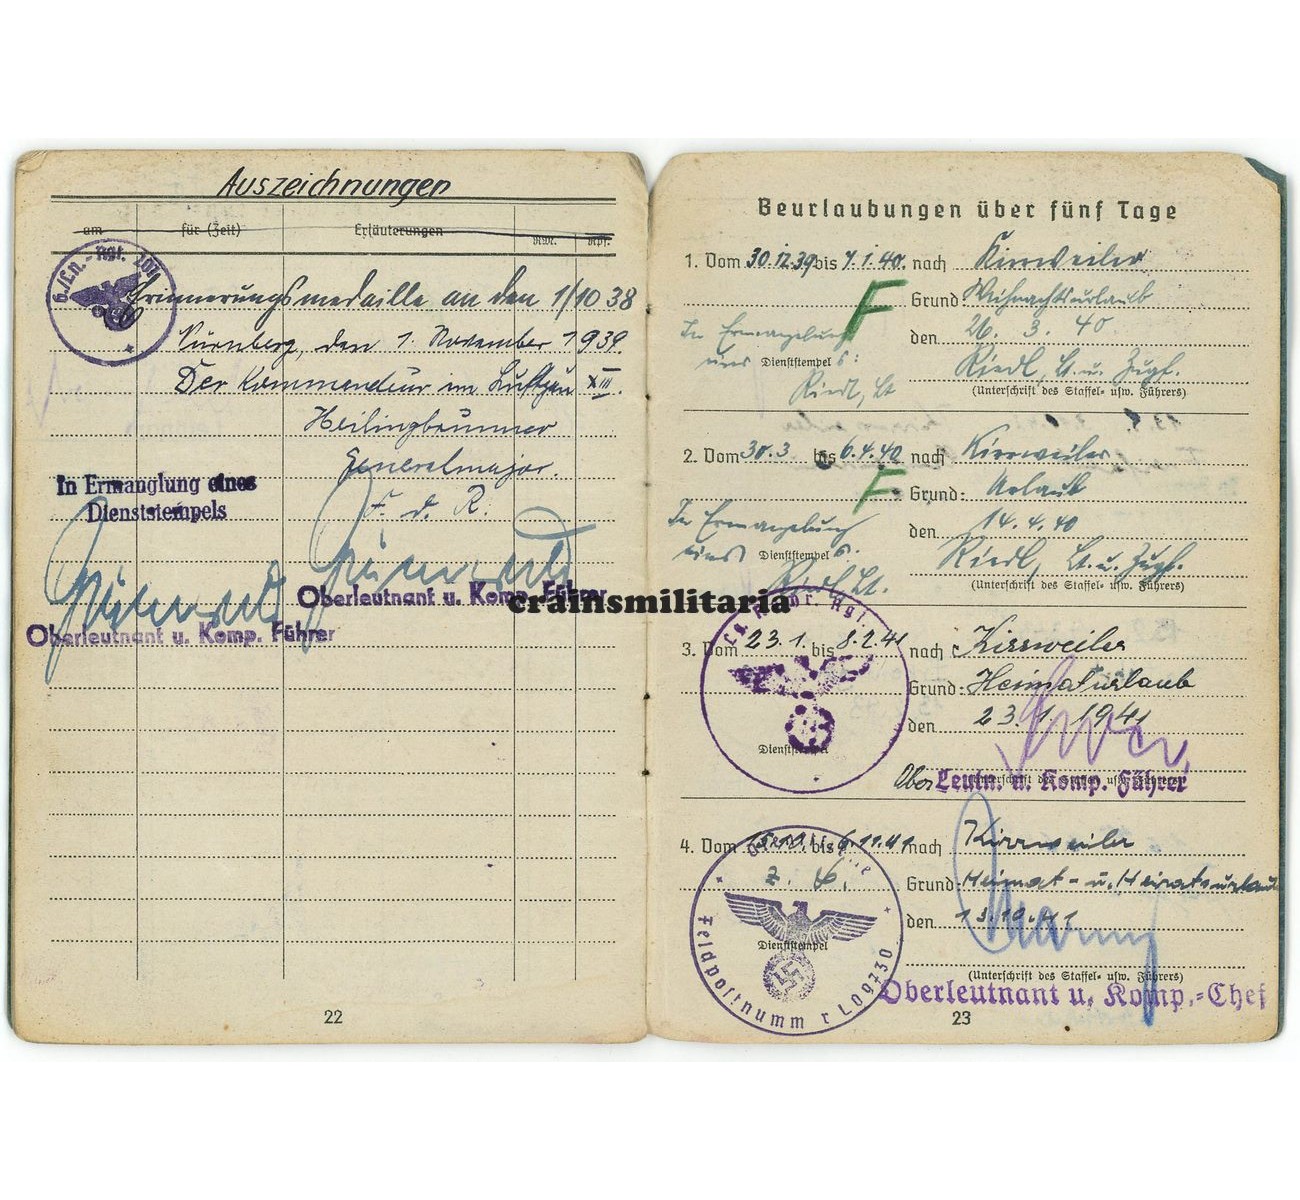 Auszeichnungen
am für (Zeit) Erläuterungen RM. Rpf.
6./Ln.-Rgt.
Erinnerungsmedaille an den 1/10 38
Nürnberg, den 1. November 1939.
Der Kommandeur im Luftgau XIII.
Heilingbrunner
Generalmajor.
F. d. R.
In Ermanglung eines
Dienststempels
Oberleutnant u. Komp. Führer
Oberleutnant u. Komp. Führer
22
crainsmilitaria
Beurlaubungen über fünf Tage
1. Vom 30.12.39 bis 7.1.40. nach Kirrweiler
F
Grund: Weihnachtsurlaub
In Ermangelung
den 26. 3. 40
eines Dienststempel s:
Riedl, Lt. u. Zugf.
Riedl, Lt
(Unterschrift des Staffel- usw. Führers)
2. Vom 30.3 bis 6.4.40 nach Kirrweiler
F
Grund: Urlaub
In Ermangelung
den 14.4.40
eines Dienststempel s.
Riedl, Lt. u. Zugf.
Riedl Lt.
(Unterschrift des Staffel- usw. Führers)
3. Vom 23.1. bis 8.2.41 nach Kirrweiler
Grund: Heimaturlaub
den 23.1.1941
Dienststempel
Ober Leutn. u. Komp. Führer
4. Vom 15.10. bis 6.11.41 nach Kirrweiler
Grund: Heimat- u. Heiratsurlaub
den 13.10.41
Dienststempel
Feldpostnummer L09730
(Unterschrift des Staffel- usw. Führers)
Oberleutnant u. Komp.-Chef
23